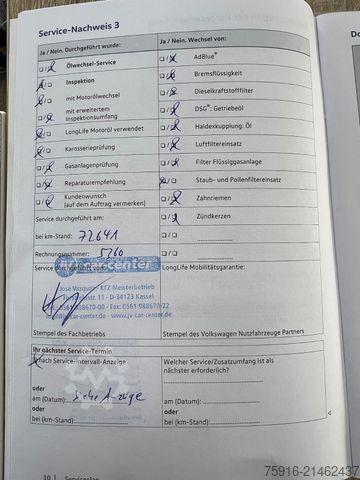 Service-Nachweis 3
Ja / Nein. Durchgeführt wurde:
Ölwechsel-Service
Inspektion
mit Motorölwechsel
mit erweitertem
Inspektionsumfang
LongLife Motoröl verwendet
Karosserieprüfung
Gasanlagenprüfung
Reparaturempfehlung
Kundenwunsch
(auf dem Auftrag vermerken)
Service durchgeführt am:
bei km-Stand: 72641
Rechnungsnummer: 5260
Service durchgeführt von:
car-center
José Vazquez KFZ Meisterbetrieb
D-34123 Kassel
Fax: 0561 988670-22
www.jv-car-center.de
Stempel des Fachbetriebs
Ja / Nein. Wechsel von:
AdBlue®
Bremsflüssigkeit
Dieselkraftstofffilter
DSG®: Getriebeöl
Haldexkupplung: Öl
Luftfiltereinsatz
Filter Flüssiggasanlage
Staub- und Pollenfiltereinsatz
Zahnriemen
Zündkerzen
LongLife Mobilitätsgarantie:
Stempel des Volkswagen Nutzfahrzeuge Partners
Ihr nächster Service-Termin
nach Service-Intervall-Anzeige
oder
am (Datum): siehe Anzeige
oder
bei (km-Stand):
Welcher Service/Zusatzumfang ist als
nächster erforderlich?
oder
am (Datum):
oder
bei (km-Stand):
10 | Serviceplan
75916-21462437